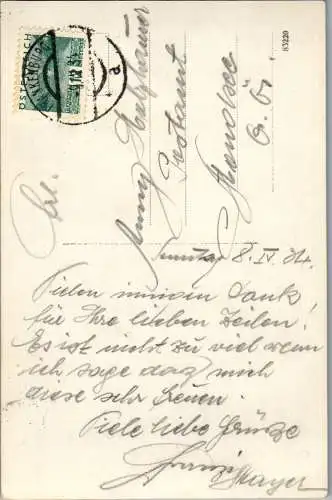 ÖSTERREICH
a
83220
Frl.
Anny
Postamt
Mondsee
O. Ö.
Sonntag 8. IV. 34.
Vielen innigen Dank
für Ihre lieben Zeilen!
Es ist nicht zu viel wenn
ich sage daß mich
diese sehr freuen.
Viele liebe Grüsse
Franzi
Mayer